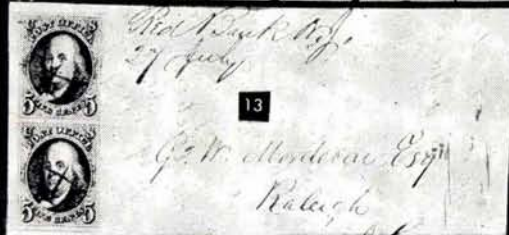 POST OFFICE
5 FIVE CENTS 5
POST OFFICE
5 FIVE CENTS 5
Red Bank N.J.
27 July
13
G. W. Mordecai Esqr
Raleigh